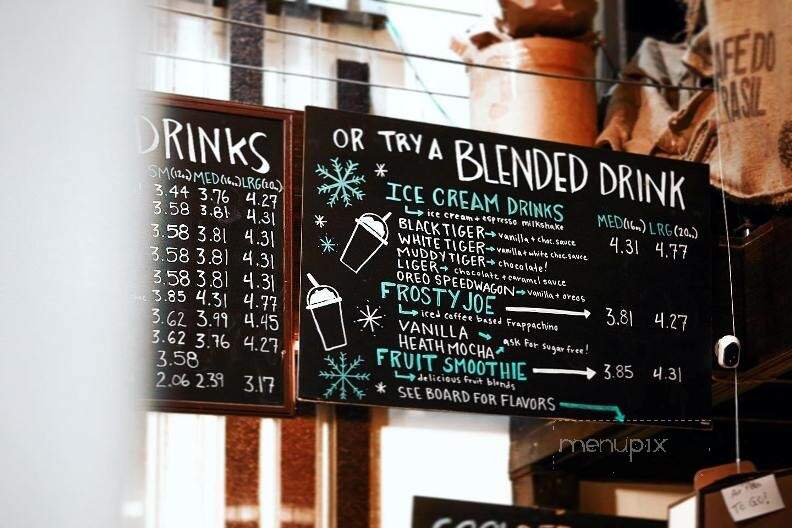 DRINKS
SM(12oz) MED(16oz) LRG(20oz)
3.44 3.76 4.27
3.58 3.81 4.31
3.58 3.81 4.31
3.58 3.81 4.31
3.58 3.81 4.31
3.85 4.31 4.77
3.62 3.99 4.45
3.62 3.76 4.27
3.58
2.06 2.39 3.17
OR TRY A BLENDED DRINK
MED(16oz) LRG(20oz)
ICE CREAM DRINKS 4.31 4.77
ice cream + espresso milkshake
BLACK TIGER → vanilla + choc. sauce
WHITE TIGER → vanilla + white choc. sauce
MUDDY TIGER → chocolate!
LIGER → chocolate + caramel sauce
OREO SPEEDWAGON → vanilla + oreos
FROSTY JOE → 3.81 4.27
iced coffee based Frappachino
VANILLA
HEATH MOCHA
ask for sugar free!
FRUIT SMOOTHIE → 3.85 4.31
delicious fruit blends
SEE BOARD FOR FLAVORS
CAFÉ DO
BRASIL
menupix
TO GO!